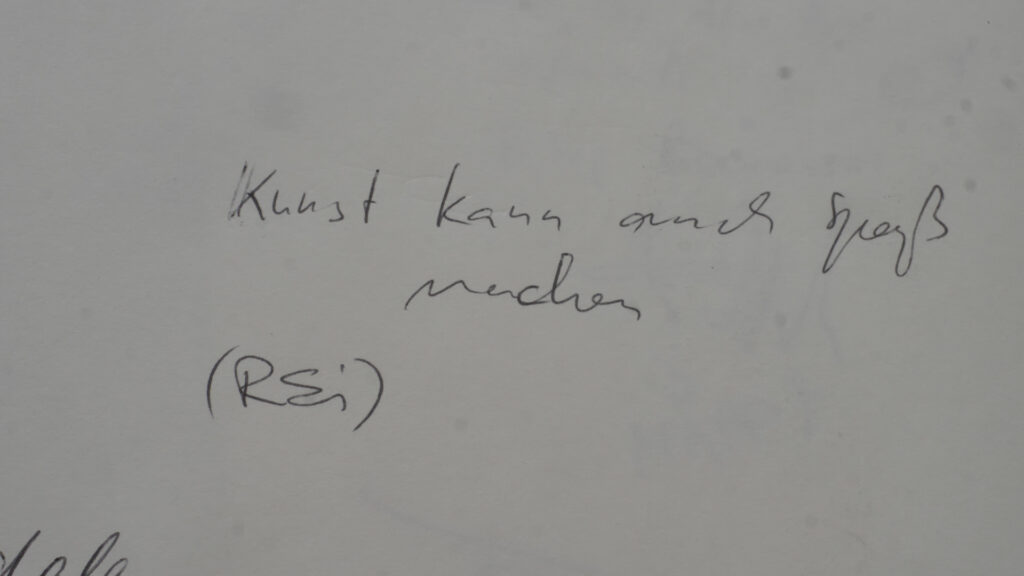 Kunst kann auch Spaß
machen
(RSi)